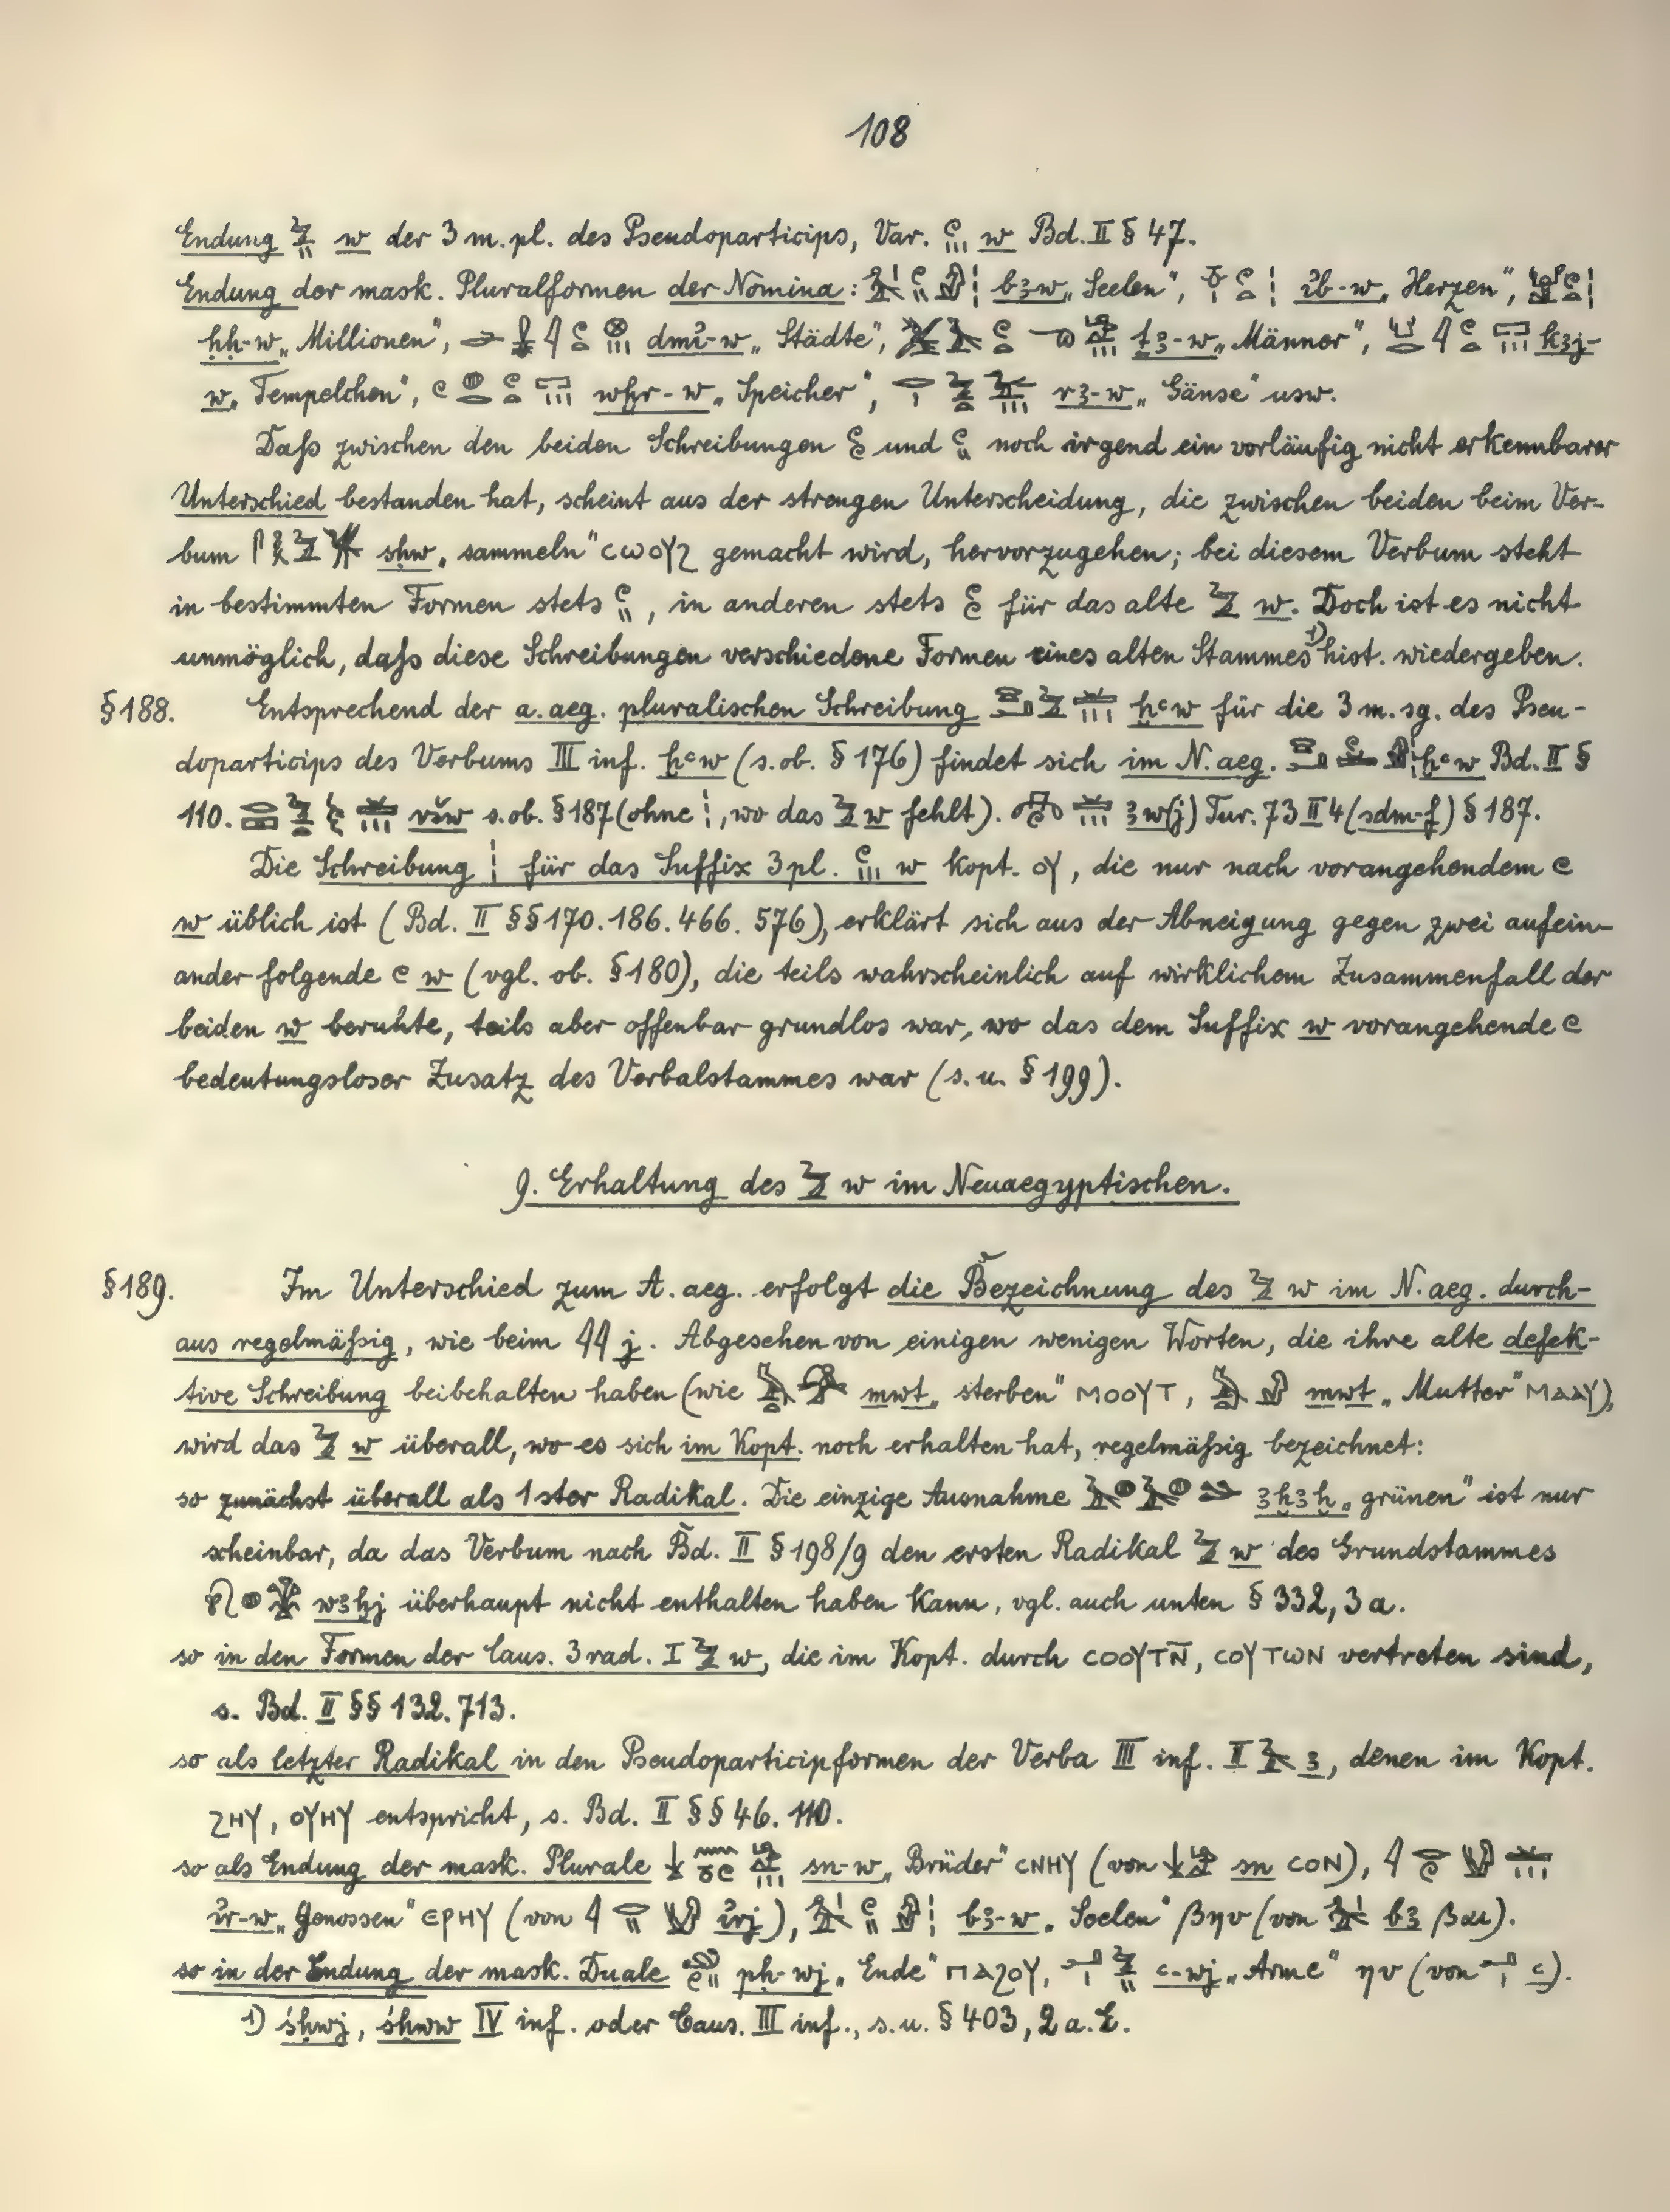 108
Endung w der 3 m. pl. des Pseudoparticips, Var. w Bd. II § 47.
Endung der mask. Pluralformen der Nomina: bꜣw „Seelen“, ı͗b-w „Herzen“,
ḥḥ-w „Millionen“, dmı͗-w „Städte“, ṯꜣ-w „Männer“, kꜣj-
w „Tempelchen“, wḫr-w „Speicher“, rꜣ-w „Gänse“ usw.
Daß zwischen den beiden Schreibungen und noch irgend ein vorläufig nicht erkennbarer
Unterschied bestanden hat, scheint aus der strengen Unterscheidung, die zwischen beiden beim Ver-
bum sḥw „sammeln“ ⲥⲱⲟⲩϩ gemacht wird, hervorzugehen; bei diesem Verbum steht
in bestimmten Formen stets , in anderen stets für das alte w. Doch ist es nicht
unmöglich, daß diese Schreibungen verschiedene Formen eines alten Stammes 1) hist. wiedergeben.
§ 188. Entsprechend der a. aeg. pluralischen Schreibung ḥꜥw für die 3 m. sg. des Pseu-
doparticips des Verbums III inf. ḥꜥw (s. ob. § 176) findet sich im N. aeg. ḥꜥw Bd. II §
110. ršw s. ob. § 187 (ohne , wo das w fehlt). ꜣw(j) Tur. 73 II 4 (sdm-f) § 187.
Die Schreibung für das Suffix 3 pl. w kopt. ⲟⲩ, die nur nach vorangehendem
w üblich ist (Bd. II §§ 170. 186. 466. 576), erklärt sich aus der Abneigung gegen zwei aufein-
ander folgende w (vgl. ob. § 180), die teils wahrscheinlich auf wirklichem Zusammenfall der
beiden w beruhte, teils aber offenbar grundlos war, wo das dem Suffix w vorangehende
bedeutungsloser Zusatz des Verbalstammes war (s. u. § 199).
9. Erhaltung des w im Neuaegyptischen.
§ 189. Im Unterschied zum A. aeg. erfolgt die Bezeichnung des w im N. aeg. durch-
aus regelmäßig, wie beim j. Abgesehen von einigen wenigen Worten, die ihre alte defek-
tive Schreibung beibehalten haben (wie mwt „sterben“ ⲙⲟⲟⲩⲧ, mwt „Mutter“ ⲙⲁⲁⲩ),
wird das w überall, wo es sich im Kopt. noch erhalten hat, regelmäßig bezeichnet:
so zunächst überall als 1ster Radikal. Die einzige Ausnahme ꜣḫꜣḫ „grünen“ ist nur
scheinbar, da das Verbum nach Bd. II § 198/9 den ersten Radikal w des Grundstammes
wꜣḫj überhaupt nicht enthalten haben kann, vgl. auch unten § 332, 3 a.
so in den Formen der Caus. 3 rad. I w, die im Kopt. durch ⲥⲟⲟⲩⲧⲛ̄, ⲥⲟⲩⲧⲱⲛ vertreten sind,
s. Bd. II §§ 132. 713.
so als letzter Radikal in den Pseudoparticipformen der Verba III inf. II ꜣ, denen im Kopt.
ϩⲏⲩ, ⲟⲩⲏⲩ entspricht, s. Bd. II §§ 46. 110.
so als Endung der mask. Plurale sn-w „Brüder“ ⲥⲛⲏⲩ (von sn ⲥⲟⲛ),
ı͗r-w „Genossen“ ⲉⲣⲏⲩ (von ı͗rj), bꜣ-w „Seelen“ βηυ (von bꜣ βαι).
so in der Endung der mask. Duale pḥ-wj „Ende“ ⲡⲁϩⲟⲩ, ꜥ-wj „Arme“ ηυ (von ꜥ).
1) śḥwj, śḥww IV inf. oder Caus. III inf., s. u. § 403, 2 a. E.